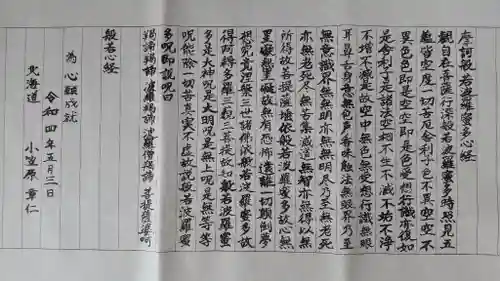 摩訶般若波羅蜜多心経
観自在菩薩行深般若波羅蜜多時照見五
蘊皆空度一切苦厄舎利子色不異空空不
異色色即是空空即是色受想行識亦復如
是舎利子是諸法空相不生不滅不垢不浄
不増不減是故空中無色無受想行識無眼
耳鼻舌身意無色声香味触法無眼界乃至
無意識界無無明亦無無明尽乃至無老死
亦無老死尽無苦集滅道無智亦無得以無
所得故菩提薩埵依般若波羅蜜多故心無
罣礙無罣礙故無有恐怖遠離一切顛倒夢
想究竟涅槃三世諸佛依般若波羅蜜多故
得阿耨多羅三藐三菩提故知般若波羅蜜
多是大神呪是大明呪是無上呪是無等等
呪能除一切苦真実不虚故説般若波羅蜜
多呪即説呪曰
羯諦羯諦 波羅羯諦 波羅僧羯諦 菩提薩婆呵
般若心経
為 心願成就
令和四年五月三日
北海道 小笠原 章仁